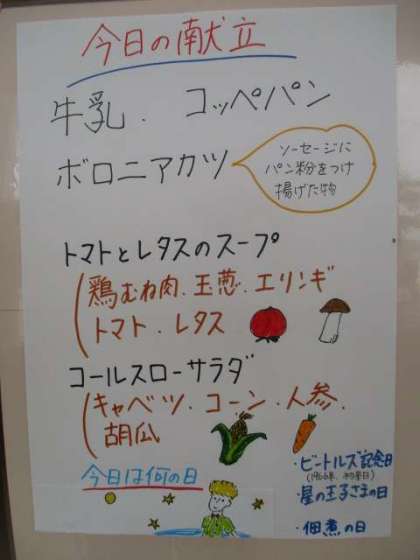 今日の献立
牛乳. コッペパン
ボロニアカツ
ソーセージに
パン粉をつけ
揚げた物
トマトとレタスのスープ
(鶏むね肉.玉葱.エリンギ
トマト.レタス
コールスローサラダ
(キャベツ.コーン.人参.
胡瓜
今日は何の日
・ビートルズ記念日
(1966年、初来日)
・星の王子さまの日
・佃煮の日